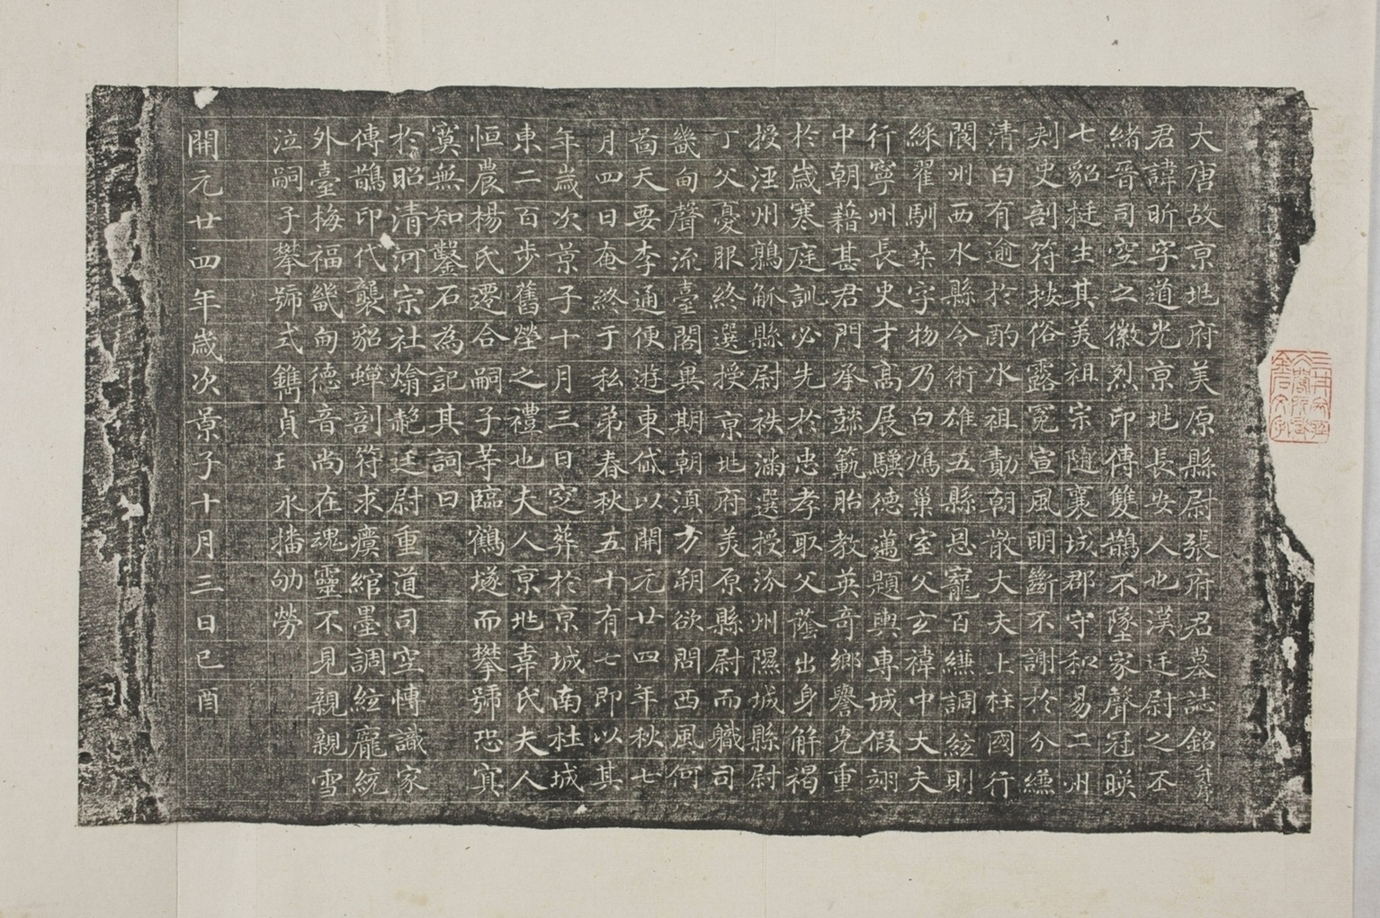 大唐故京地府美原縣尉張府君墓誌銘并序
君諱昕字道光京地長安人也漢廷尉之丕
緒晉司空之徽烈印傳雙鵲不墜家聲冠暎
七貂挺生其美祖宗隨襄城郡守和易二州
刺史剖符按俗露冕宣風明斷不謝於分縑
清白有逾於酌水祖勣朝散大夫上柱國行
閬州西水縣令術雄五縣恩寵百縑調絃則
綵翟馴桒字物乃白鳩巢室父玄禕中大夫
行寧州長史才高展驥德邁題輿專城假翊
中朝藉甚君門承懿範胎教英奇鄉譽克重
於歲寒庭訓必先於忠孝取父蔭出身解褐
授涇州鶉觚縣尉秩滿選授汾州隰城縣尉
丁父憂服終選授京地府美原縣尉而軄司
畿甸聲流臺閣異期朝滇方朔欲問西風何
啚天要李通便遊東岱以開元廿四年秋七
月四日奄終于私弟春秋五十有七即以其
年歲次景子十月三日窆葬於京城南杜城
東二百步舊塋之禮也夫人京地韋氏夫人
恒農楊氏遷合嗣子等臨鶴墜而攀號恐寘
寞無知鑿石為記其詞曰
於昭清河宗社焴赩廷尉重道司空慱識家
傳鵲印代襲貂蟬剖符求瘼綰墨調絃龐統
外臺梅福畿甸德音尚在魂靈不見親親雪
泣嗣子攀號式鐫貞玉永播劬勞
開元廿四年歲次景子十月三日己酉